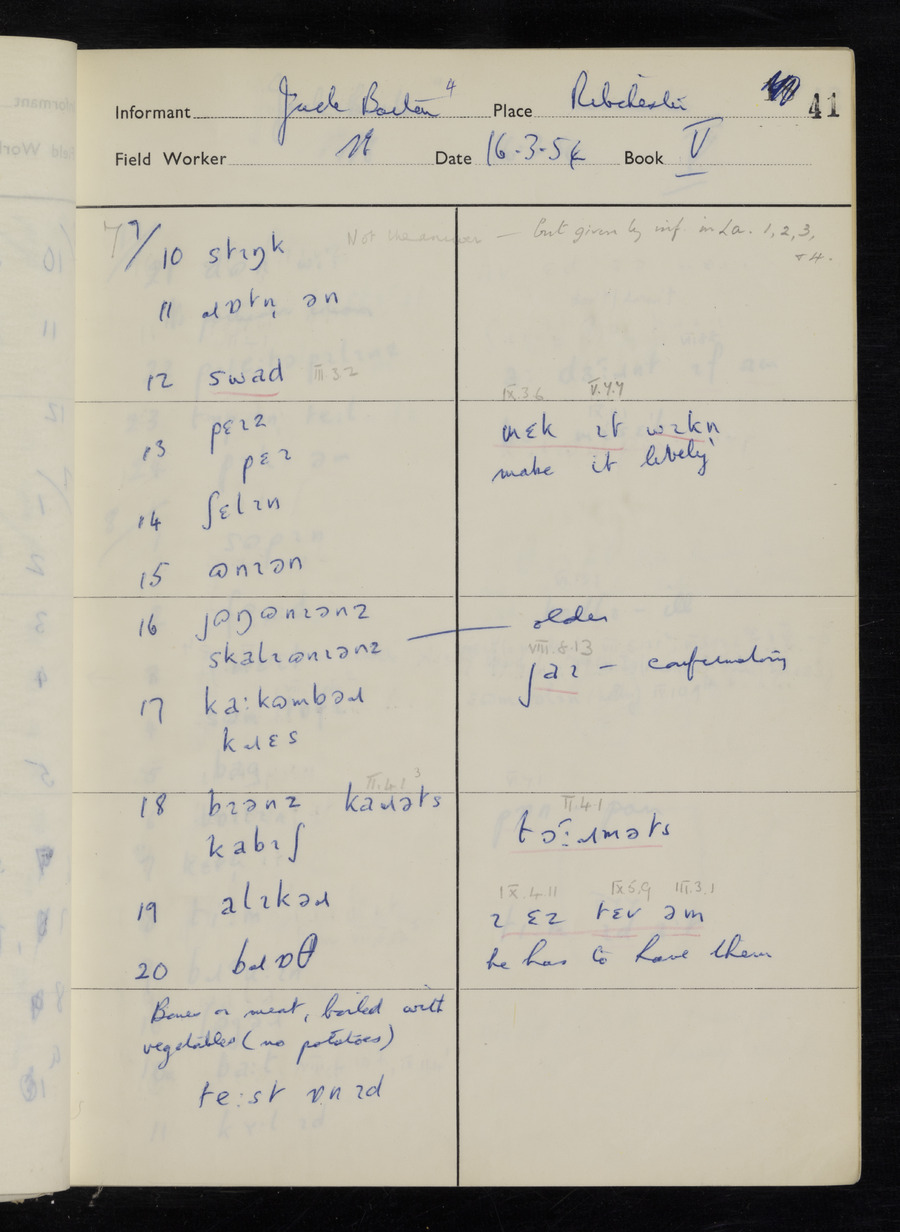 Informant Jack Boltan 4 Place Ribchester 41
Field Worker Date 16.3.54 Book V
7/10 stɪŋk Not the answer — but given by inf. in La. 1, 2, 3,
& 4.
11 ɹɒtn̩ ən
12 swad III 3 2
IX.3.6 V.7.7
13 pɛɪz mɛk ɪt wɪkn̩
pɛɪ make it lively
14 ʃɛlɪn
15 ɷnɪən
16 jɷŋɷnɪənz older
skalɪɷnɪənz
VIII.8.13
ʃaɪ — confirmatory
17 ka:kɷmbəɹ
kɹɛs
II.4.1 3
18 bɪənz kaɹəts
II.4.1
kabɪʃ tɔ:ɹməts
IX.4.11 IX5.9 III.3.1
19 alɪkəɹ ɪ ɛz tɛv əm
20 bɹɒθ he has to have them
Bones or meat, boiled with
vegetables (no potatoes)
te:st ɒn ɪd